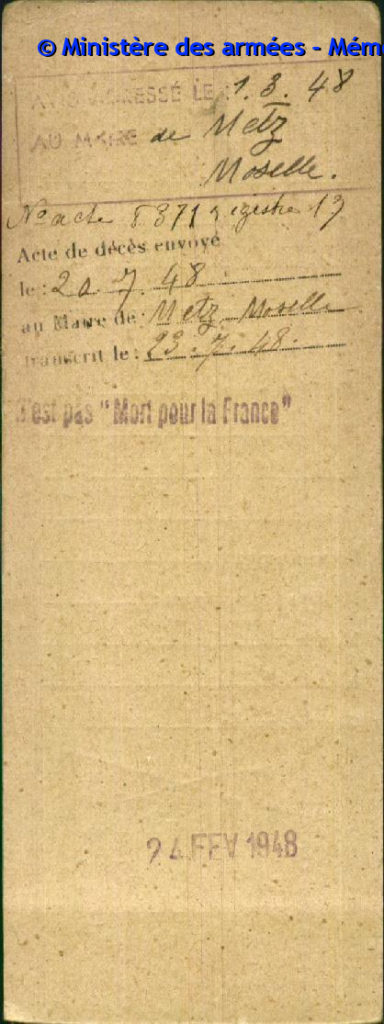 © Ministère des armées - Mém
AVIS ADRESSÉ LE : 1.3.48
AU MAIRE de Metz
Moselle.
N° acte 5871 registre 17
Acte de décès envoyé
le : 20.7.48
au Maire de : Metz Moselle
transcrit le : 23.7.48.
N'est pas "Mort pour la France"
24 FEV 1948